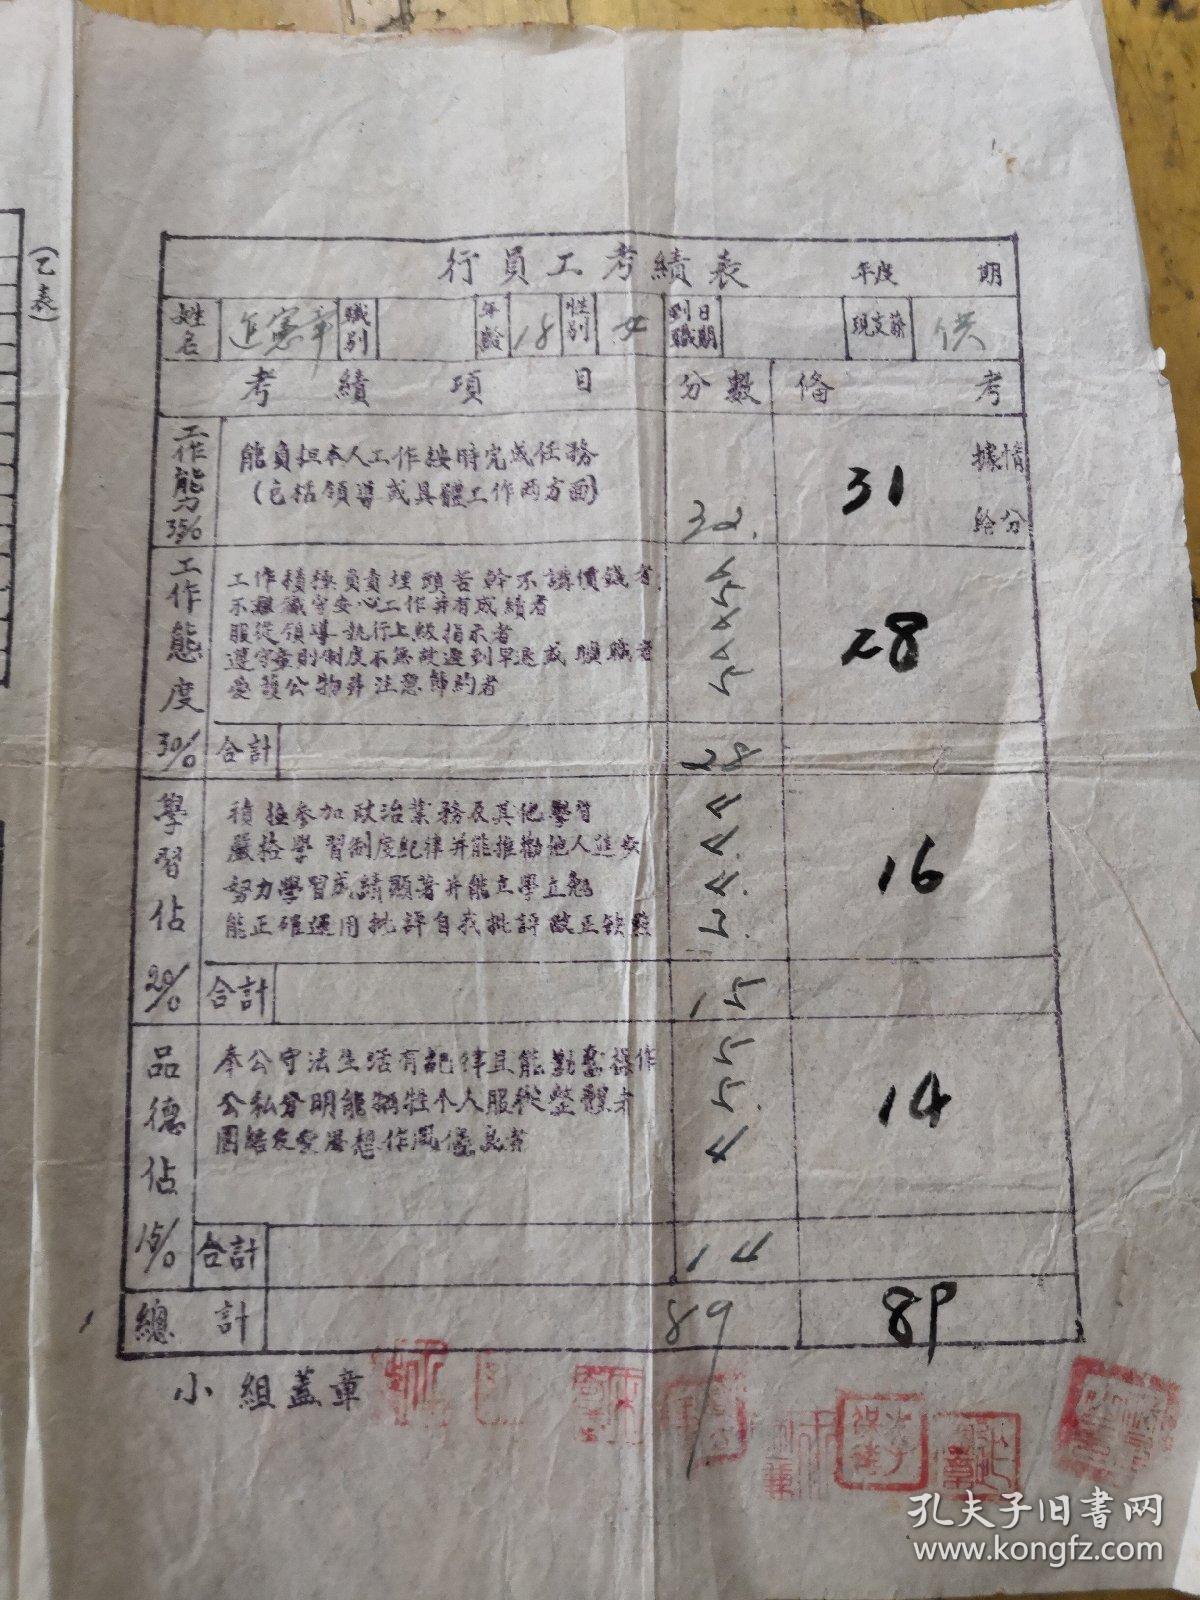 (乙表)
行員工考績表 年度 期
姓名 進憲章 職別 年齡 18 性別 女 到職日期 現支薪 供
考績項目 分數 備考
工作能力 35%
能負担本人工作按時完成任務
(包括領導或具體工作两方面)
32. 31 據情給分
工作態度 30%
工作積極負責埋頭苦幹不講價錢者
不離職守安心工作并有成績者
服從領導執行上級指示者
遵守章則制度不無故遲到早退或曠職者
愛護公物并注意節約者
28
合計 28
學習佔 20%
積極參加政治業務及其他學習
嚴格學習制度紀律并能推動他人進步
努力學習成績顯著并能立學立勉
能正確運用批評自我批評改正缺點
16
合計 15
品德佔 15%
奉公守法生活有紀律且能勤奮操作
公私分明能犧牲个人服從整體者
團結友愛思想作風優良者
5
5
4
14
合計 14
總計 89 89
小組蓋章
孔夫子旧書网
www.kongfz.com